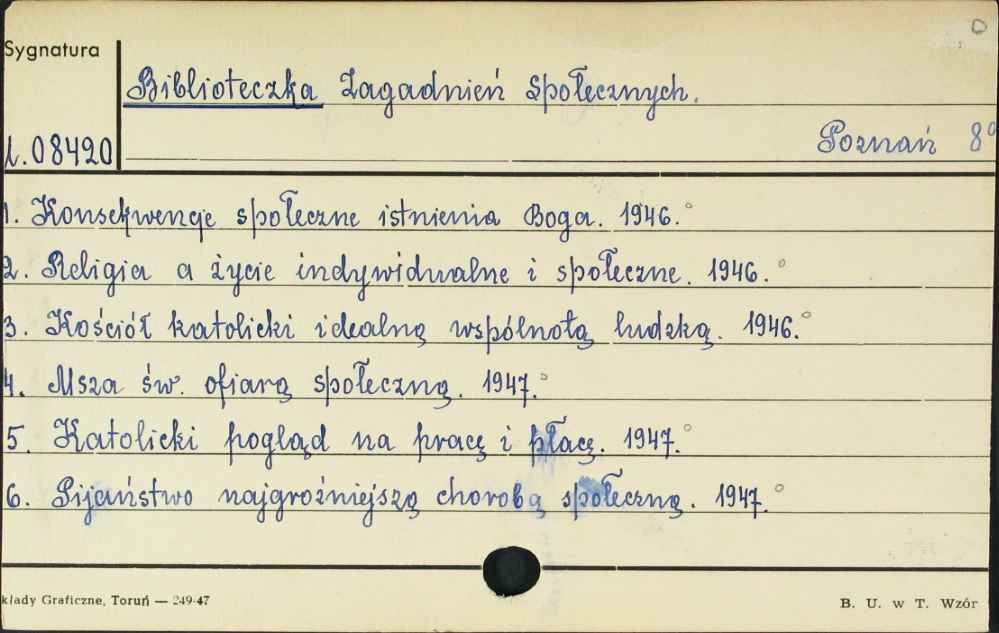 Sygnatura
Biblioteczka Zagadnień Społecznych.
1.08420
Poznań 8°
1. Konsekwencje społeczne istnienia Boga. 1946.°
2. Religia a życie indywidualne i społeczne. 1946.°
3. Kościół katolicki idealną wspólnotą ludzką. 1946.°
4. Msza św. ofiarą społeczną. 1947.°
5. Katolicki pogląd na pracę i płacę. 1947.°
6. Pijaństwo najgroźniejszą chorobą społeczną. 1947.°
kłady Graficzne, Toruń — 249-47
B. U. w T. Wzór